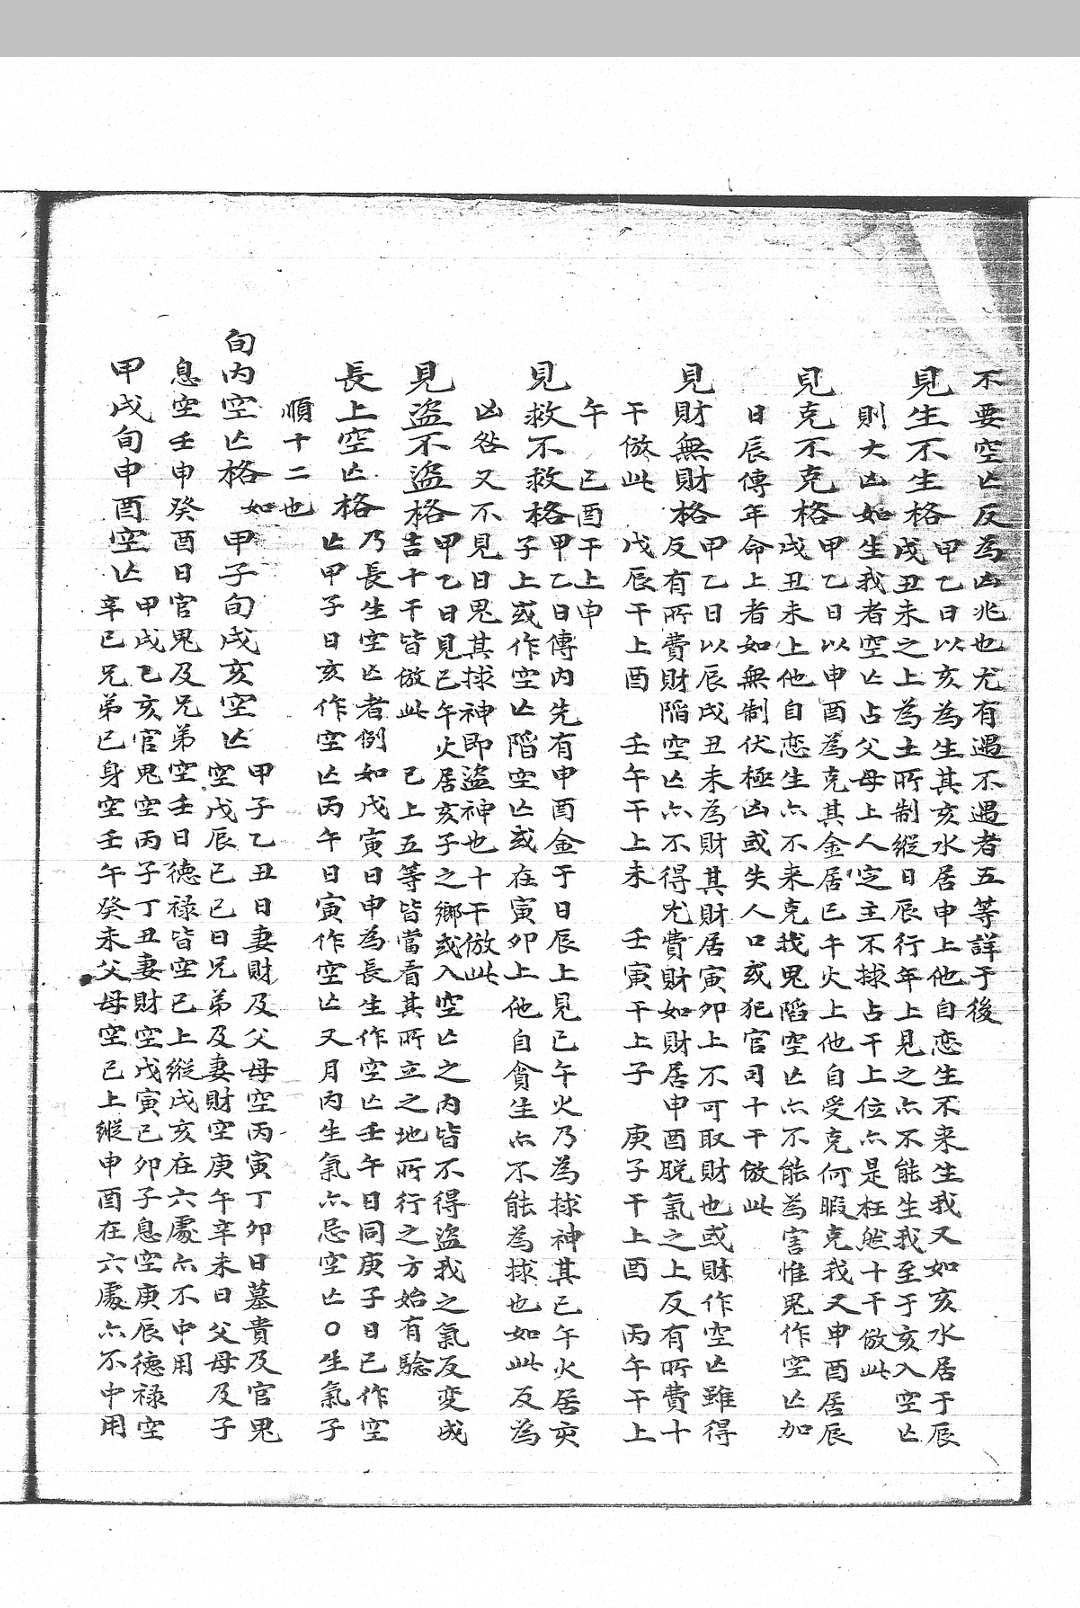 不要空亡反為凶兆也尤有遇不遇者五等詳于後
見生不生格甲乙日以亥為生其亥水居申上他自恋生不来生我又如亥水居于辰
戌丑未之上為土所制縱日辰行年上見之亦不能生我至于亥入空亡
則大凶如生我者空亡占父母上人定主不捄占干上位亦是枉然十干倣此
見克不克格甲乙日以申酉為克其金居巳午火上他自受克何暇克我又申酉居辰
戌丑未上他自恋生亦不来克我鬼陷空亡亦不能為害惟鬼作空亡加
日辰傳年命上者如無制伏極凶或失人口或犯官司十干倣此
見財無財格甲乙日以辰戌丑未為財其財居寅卯上不可取財也或財作空亡雖得
反有所費財陷空亡亦不得尤費財如財居申酉脱氣之上反有所費十
干倣此 戊辰干上酉 壬午干上未 壬寅干上子 庚子干上酉 丙午干上
午 己酉干上申
見救不救格甲乙日傳内先有申酉金于日辰上見巳午火乃為捄神其巳午火居亥
子上或作空亡陷空亡或在寅卯上他自貪生亦不能為捄也如此反為
凶咎又不見日鬼其捄神即盜神也十干倣此
見盜不盜格甲乙日見巳午火居亥子之鄉或入空亡之内皆不得盜我之氣反変成
吉十干皆倣此 已上五等皆當看其所立之地所行之方始有驗
長上空亡格乃長生空亡者例如戊寅日申為長生作空亡壬午日同庚子日巳作空
亡甲子日亥作空亡丙午日寅作空亡又月内生氣亦忌空亡○生氣子
順十二也
旬内空亡格如甲子旬戌亥空亡甲子乙丑日妻財及父母空丙寅丁卯日墓貴及官鬼
空戊辰己巳日兄弟及妻財空庚午辛未日父母及子
息空壬申癸酉日官鬼及兄弟空壬日德禄皆空已上縱戌亥在六處亦不中用
甲戌旬申酉空亡甲戌乙亥官鬼空丙子丁丑妻財空戊寅己卯子息空庚辰德禄空
辛巳兄弟已身空壬午癸未父母空已上縱申酉在六處亦不中用